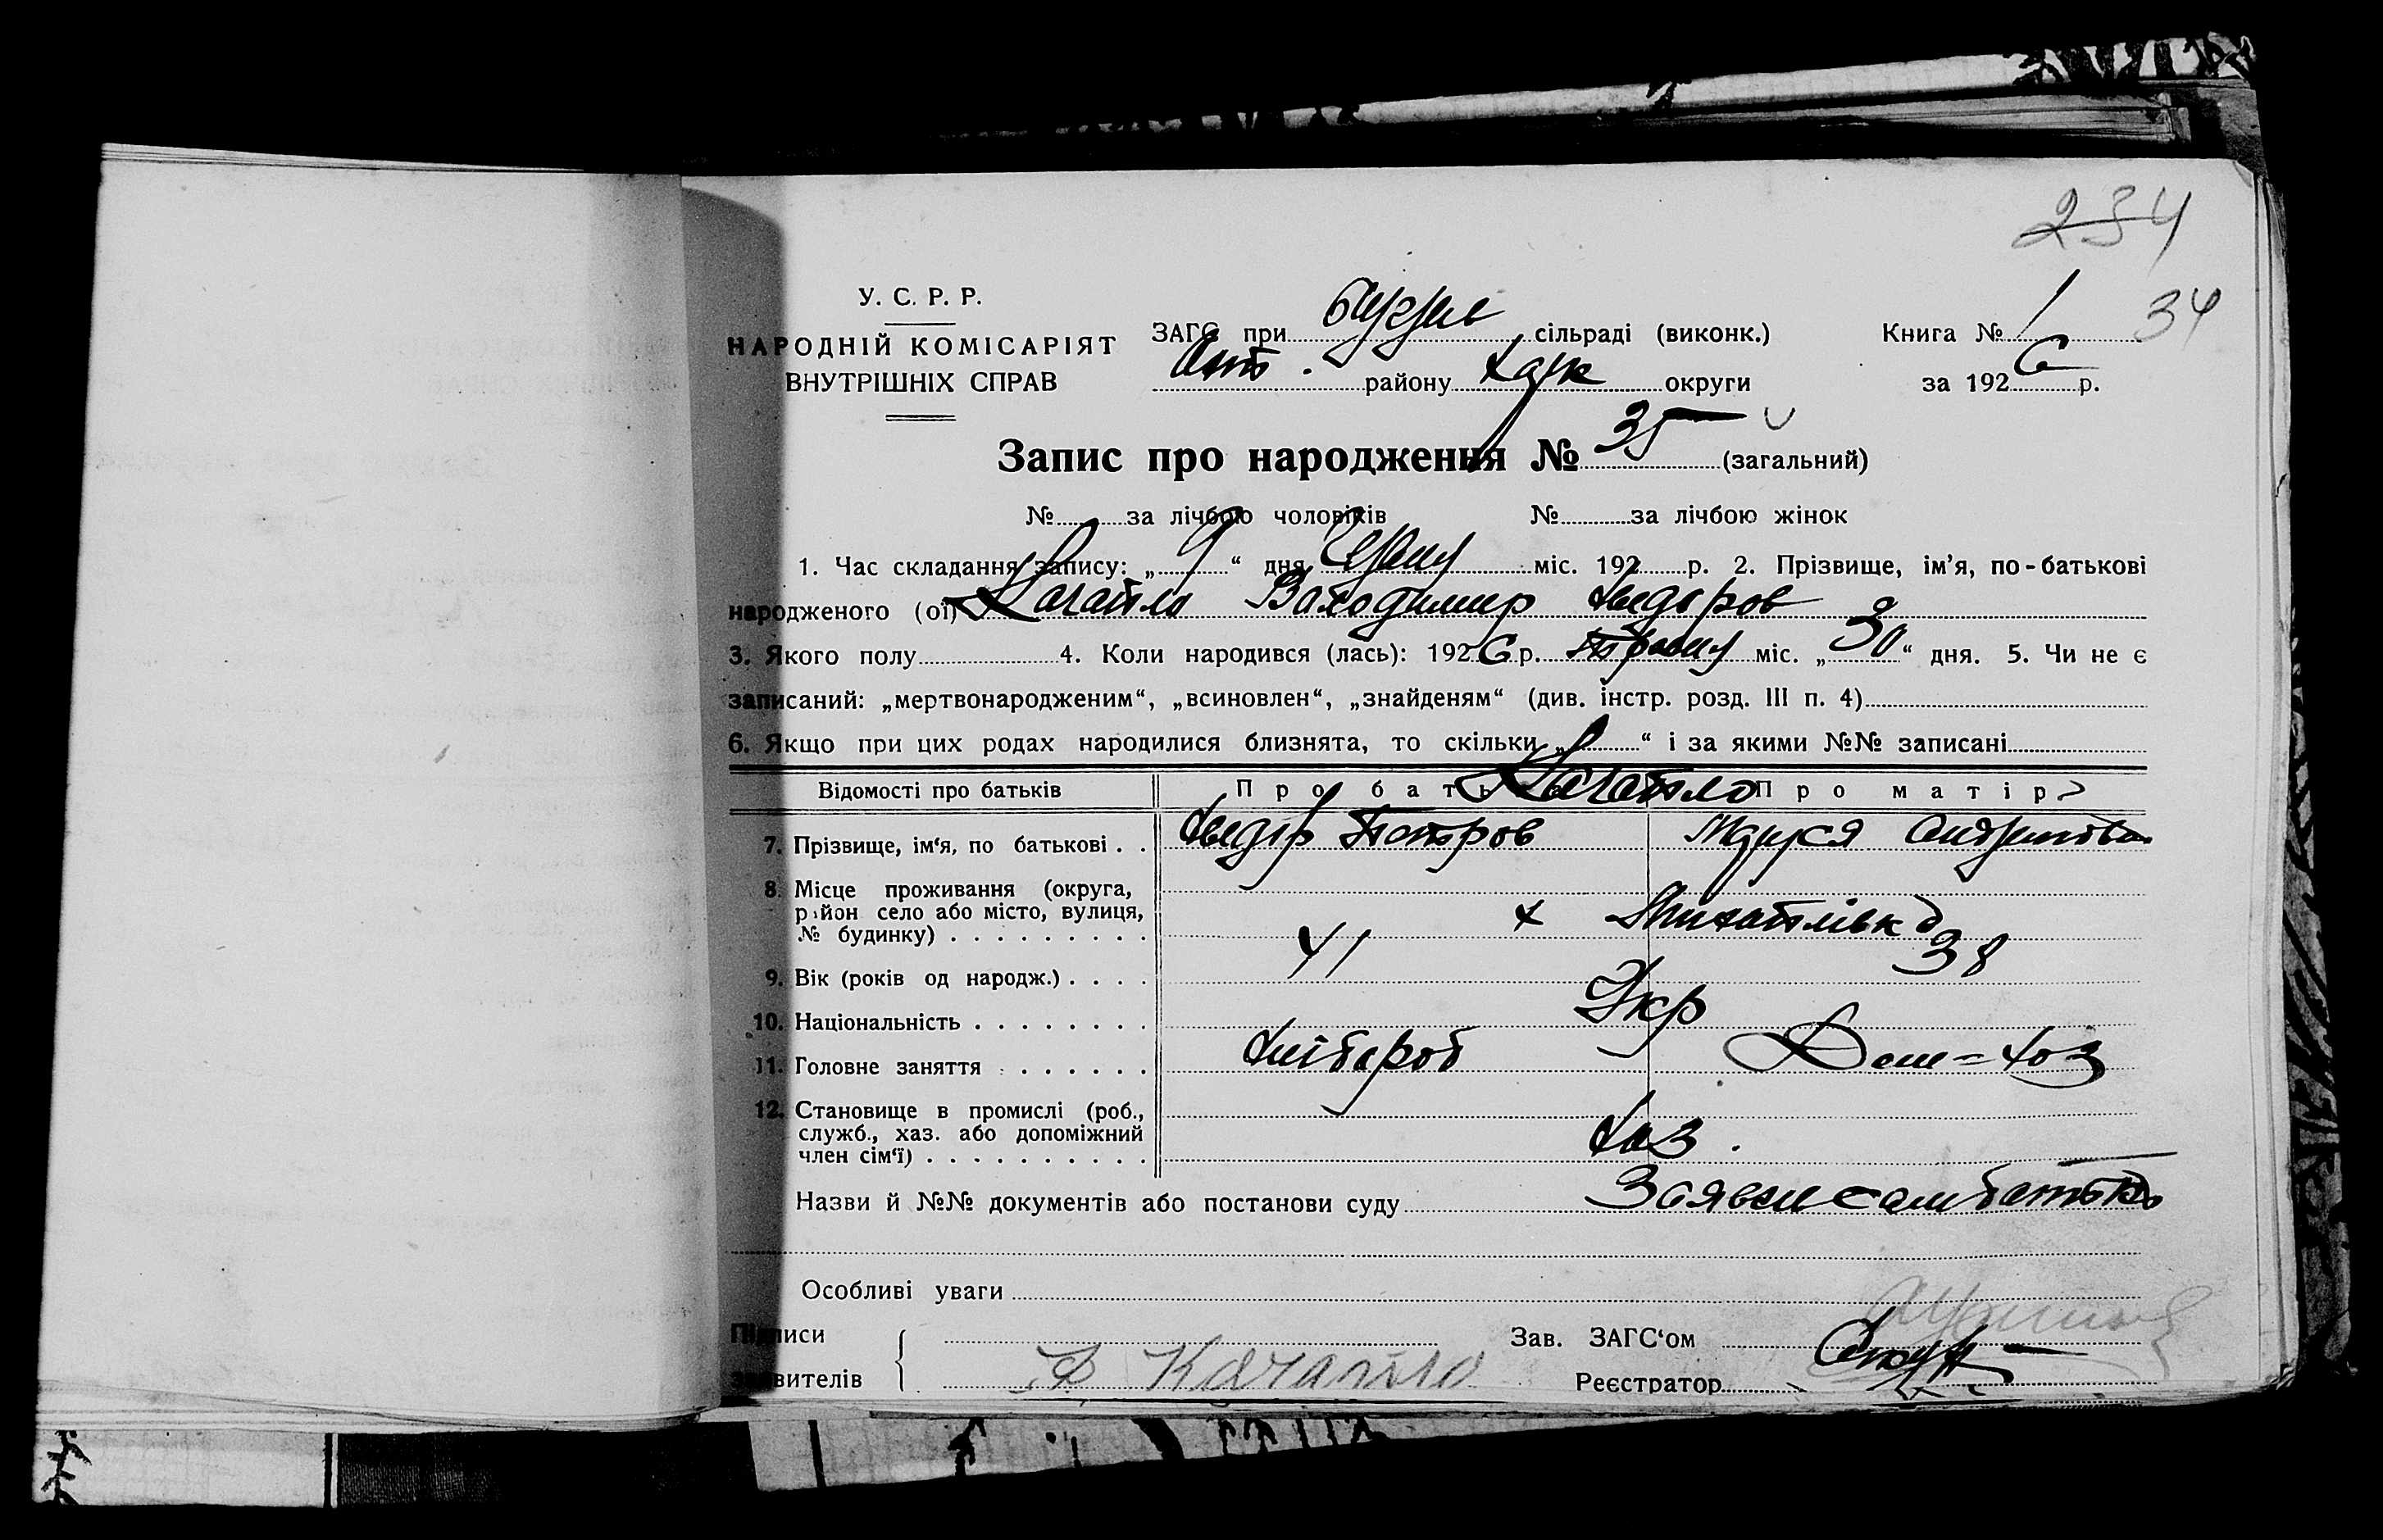 234
34
У. С. Р. Р.
НАРОДНІЙ КОМІСАРІЯТ
ВНУТРІШНІХ СПРАВ
ЗАГС при сільраді (виконк.)
району Харк округи
Книга № 1
за 1926 р.
Запис про народження № 35 (загальний)
№ за лічбою чоловіків № за лічбою жінок
1. Час складання запису: „ 9 “ дня Червня міс. 192 р. 2. Прізвище, ім'я, по-батькові
народженого (ої) Качайло Володимир Хведоров
3. Якого полу 4. Коли народився (лась): 1926 р. Травня міс. „ 30 “ дня. 5. Чи не є
записаний: „мертвонародженим“, „всиновлен“, „знайденям“ (див. інстр. розд. III п. 4)
6. Якщо при цих родах народилися близнята, то скільки „ “ і за якими №№ записані
Відомості про батьків Про батька Качайло Про матір
7. Прізвище, ім'я, по батькові . . Хведір Петров Маруся
8. Місце проживання (округа,
район село або місто, вулиця,
№ будинку) . . . . . . . . . х Михайлівка
9. Вік (років од народж.) . . . . 41 38
10. Національність . . . . . . . . Укр
11. Головне заняття . . . . . . . Хлібороб Дом=хоз
12. Становище в промислі (роб.,
служб., хаз. або допоміжний
член сім'ї) . . . . . . . . . . Хоз.
Назви й №№ документів або постанови суду Заявил сам батько
Особливі уваги
Підписи
заявителів Ф Качайло
Зав. ЗАГС'ом
Реєстратор